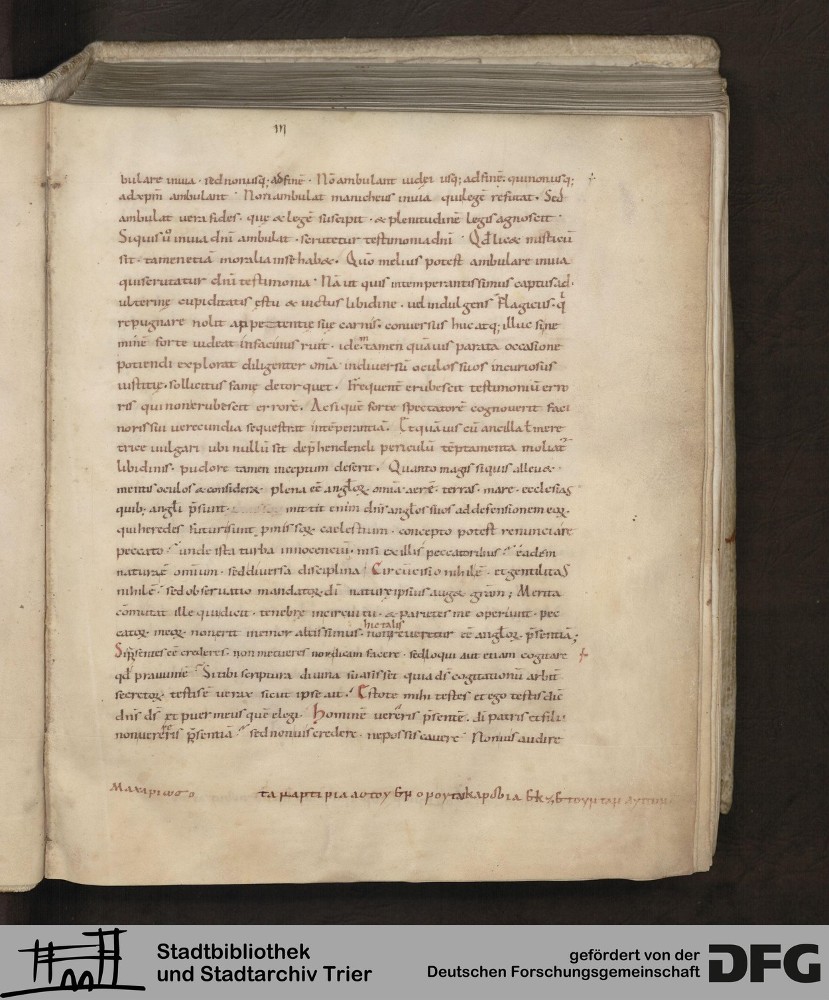 III
bulare in uia · sed non usq; ad finē · Nō ambulant iudei usq; ad finē · qui non usq;
ad xpm̄ ambulant · Non ambulat manicheus in uia qui legē refutat · Sed
ambulat uera fides · que & legē suscipit · & plenitudinē legis agnoscit ·
Siquis ū in uia dn̄i ambulat · scrutetur testimonia dn̄i · Qd̄ lic& misticū
sit · tamen etiā moralia in se hab& · Quo melius potest ambulare in uia
qui scrutatur dn̄i testimonia · Nā ut quis intemperantissimus captus · ad
ulterine cupiditatis ęstu & uictus libidine · uel indulgens flagiciis · q̄
repugnare nolit appetentie sue carnis · conuersus huc atq; illuc si ne
minē forte uideat in facinus ruit · idē tamen quāuis parata occasione
potiendi explorat diligenter om̄ia in diuersū oculos suos incuriosus
iustitię · sollicitus famę detorquet · Frequent̄ erubescit testimoniū erro
ris qui non erubescit errorē · Ac si quē forte spectatorē cognouerit faci
noris sui uerecundia sequestrat intēperantiā · Et quāuis cū ancilla ł mere
trice uulgari ubi nullū sit dep̄hendendi periculū tēptamenta moliat̄
libidinis · pudore tamen inceptum deserit · Quanto magis siquis alleu&
mentis oculos & consider& · plena eē angłoꝝ om̄ia aerē · terras · mare · ecclesias
quib; angli p̄sunt · mittit enim dn̄s anglos suos ad defensionem eoꝝ ·
qui heredes futuri sunt p̄missoꝝ caelestium · concepto potest renunciare
peccato · unde ista turba innocenciū · nisi ex illis peccatoribus · eadem
natura ē omnium · sed diuersa disciplina · Circūcisio nihil ē · et gentilitas
nihil ē · sed obseruatio mandatoꝝ dī naturę ipsius aug& grām ; Merita
cōmutat ille qui dicit · tenebrę me circuitu · & parietes me operiunt · pec
catoꝝ meoꝝ non erit memor altissimus · hic talis non reueretur eē angłoꝝ p̄sentiā ;
Si p̄sentes eē crederes · non metueres non dicam facere · sed loqui aut etiam cogitare
qd̄ prauum ē · Si tibi scriptura diuina suasisset quia ds̄ cogitationū arbit̄
secretoꝝ testis ē ueriꝝ sicut ipse ait · Estote mihi testes et ego testis dic̄
dn̄s ds̄ et puer meus quē elegi · Hominē uereris p̄sentē · dī patris et filii
non uereris p̄sentiā · sed non uis credere · ne possis cauere · Non uis audire
μαχαριωσο
τα μαρτιρια αυτου